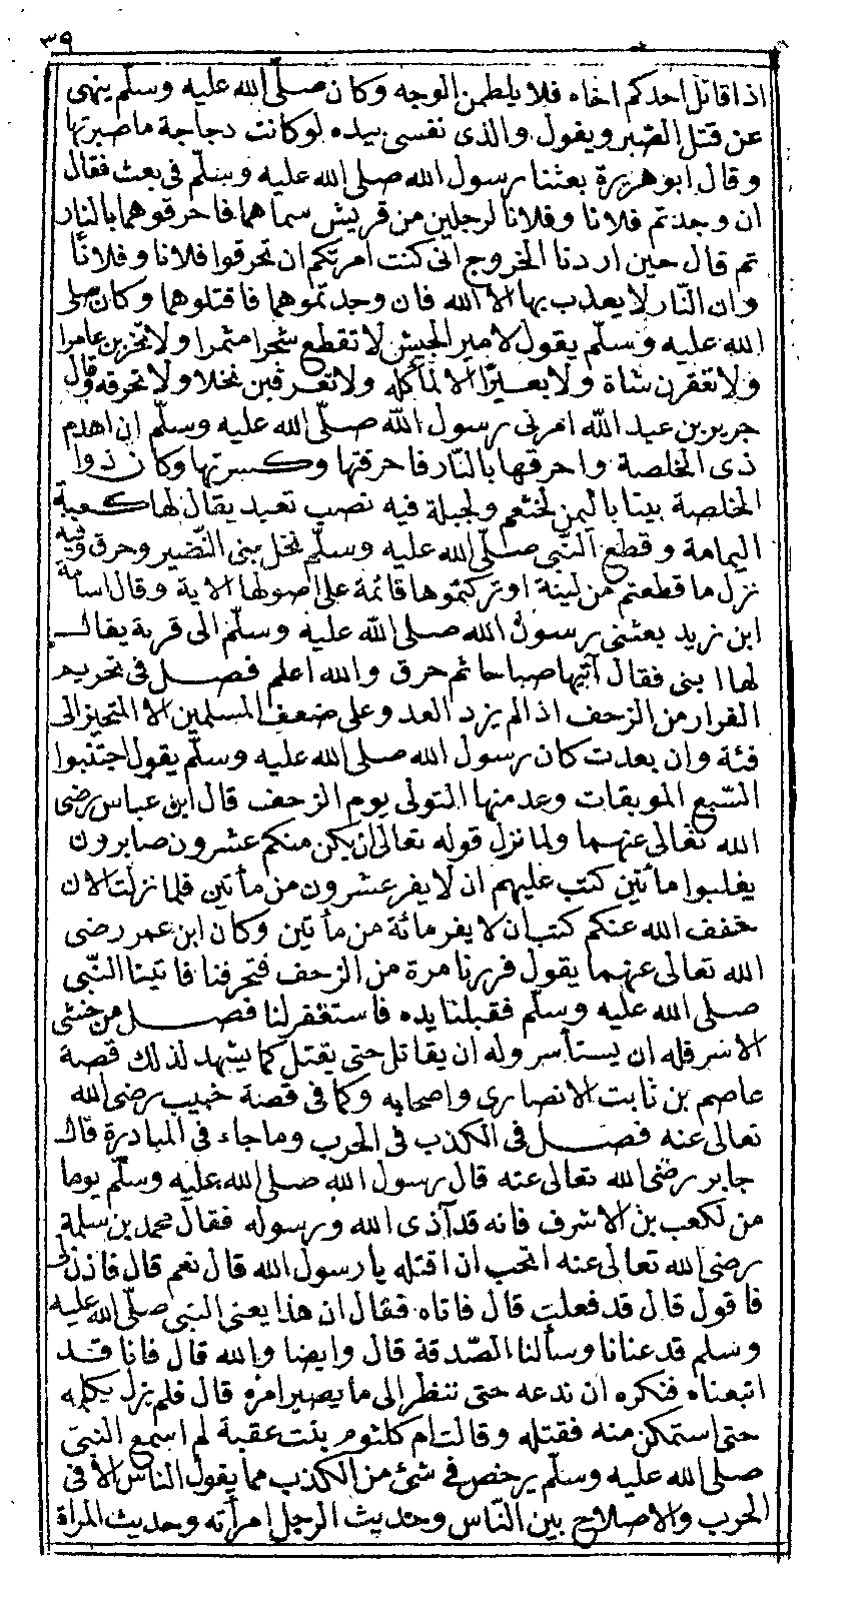 ٣٩
اذا قاتل احدكم اخاه فلا يلطمن الوجه وكان صلّى الله عليه وسلّم ينهى
عن قتل الصّبر ويقول والذى نفسى بيده لو كانت دجاجة ما صبرتها
وقال ابو هريرة بعثنا رسول الله صلى الله عليه وسلّم فى بعث فقال
ان وجدتم فلانا وفلانا لرجلين من قريش سماهما فاحرقوهما بالنار
ثم قال حين اردنا الخروج انى كنت امرتكم ان تحرقوا فلانا وفلانًا
وان النّار لا يعذب بها الا الله فان وجدتموهما فاقتلوهما وكان صلى
الله عليه وسلّم يقول لامير الجيش لا تقطع شجرا مثمرا ولا تخربن عامرا
ولا تعقرن شاة ولا بعيرًا الا لمأكله ولا تغرقن نخلا ولا تحرقه وقال
جرير بن عبد الله امرنى رسول الله صلّى الله عليه وسلّم ان اهدم
ذى الخلصة واحرقها بالنّار فاحرقتها وكسرتها وكان ذوا
الخلصة بيتا باليمن لخثعم ولجبلة فيه نصب تعبد يقال لها كعبة
اليمامة وقطع النّبى صلّى الله عليه وسلّم نخل بنى النّضير وحرق وفيه
نزل ما قطعتم من لينة او تركتموها قائمة على اصولها الاية وقال اسامة
ابن زيد بعثنى رسول الله صلى الله عليه وسلّم الى قرية يقال
لها ابنى فقال آتيها صباحا ثم حرق والله اعلم فصل فى تحريم
الفرار من الزحف اذا لم يزد العد وعلى ضعف المسلمين الا المتحيز الى
فئة وان بعدت كان رسول الله صلى الله عليه وسلّم يقول اجتنبوا
السّبع الموبقات وعد منها التولى يوم الزحف قال ابن عباس رضى
الله تعالى عنهما ولما نزل قوله تعالى ان يكن منكم عشرون صابرون
يغلبوا مأتين كتب عليهم ان لا يفر عشرون من مأتين فلما نزلت الان
خفف الله عنكم كتب ان لا يفر مائة من مأتين وكان ابن عمر رضى
الله تعالى عنهما يقول فررنا مرة من الزحف فتحرفنا فاتينا النّبى
صلى الله عليه وسلّم فقبلنا يده فاستغفر لنا فصل من خشى
الاسر فله ان يستأسر وله ان يقاتل حتى يقتل كما يشهد لذلك قصة
عاصم بن ثابت الانصارى واصحابه وكما فى قصة خبيب رضى الله
تعالى عنه فصل فى الكذب فى الحرب وما جاء فى المبادرة قال
جابر رضى الله تعالى عنه قال رسول الله صلى الله عليه وسلّم يوما
من لكعب بن الاشرف فانه قد آذى الله ورسوله فقال محمد بن سلمة
رضى الله تعالى عنه اتحب ان اقتله يا رسول الله قال نعم قال فاذن لى
فاقول قال قد فعلت قال فاتاه فقال ان هذا يعنى النبى صلّى الله عليه
وسلم قد عنانا وسألنا الصّدقة قال وايضا والله قال فانا قد
اتبعناه فنكره ان ندعه حتى ننظر الى ما يصير امره قال فلم يزل يكلمه
حتى استمكن منه فقتله وقالت ام كلثوم بنت عقبة لم اسمع النبىّ
صلى الله عليه وسلّم يرخص فى شئ من الكذب مما يقول الناس الا فى
الحرب والاصلاح بين النّاس وحديث الرجل امرأته وحديث المراة